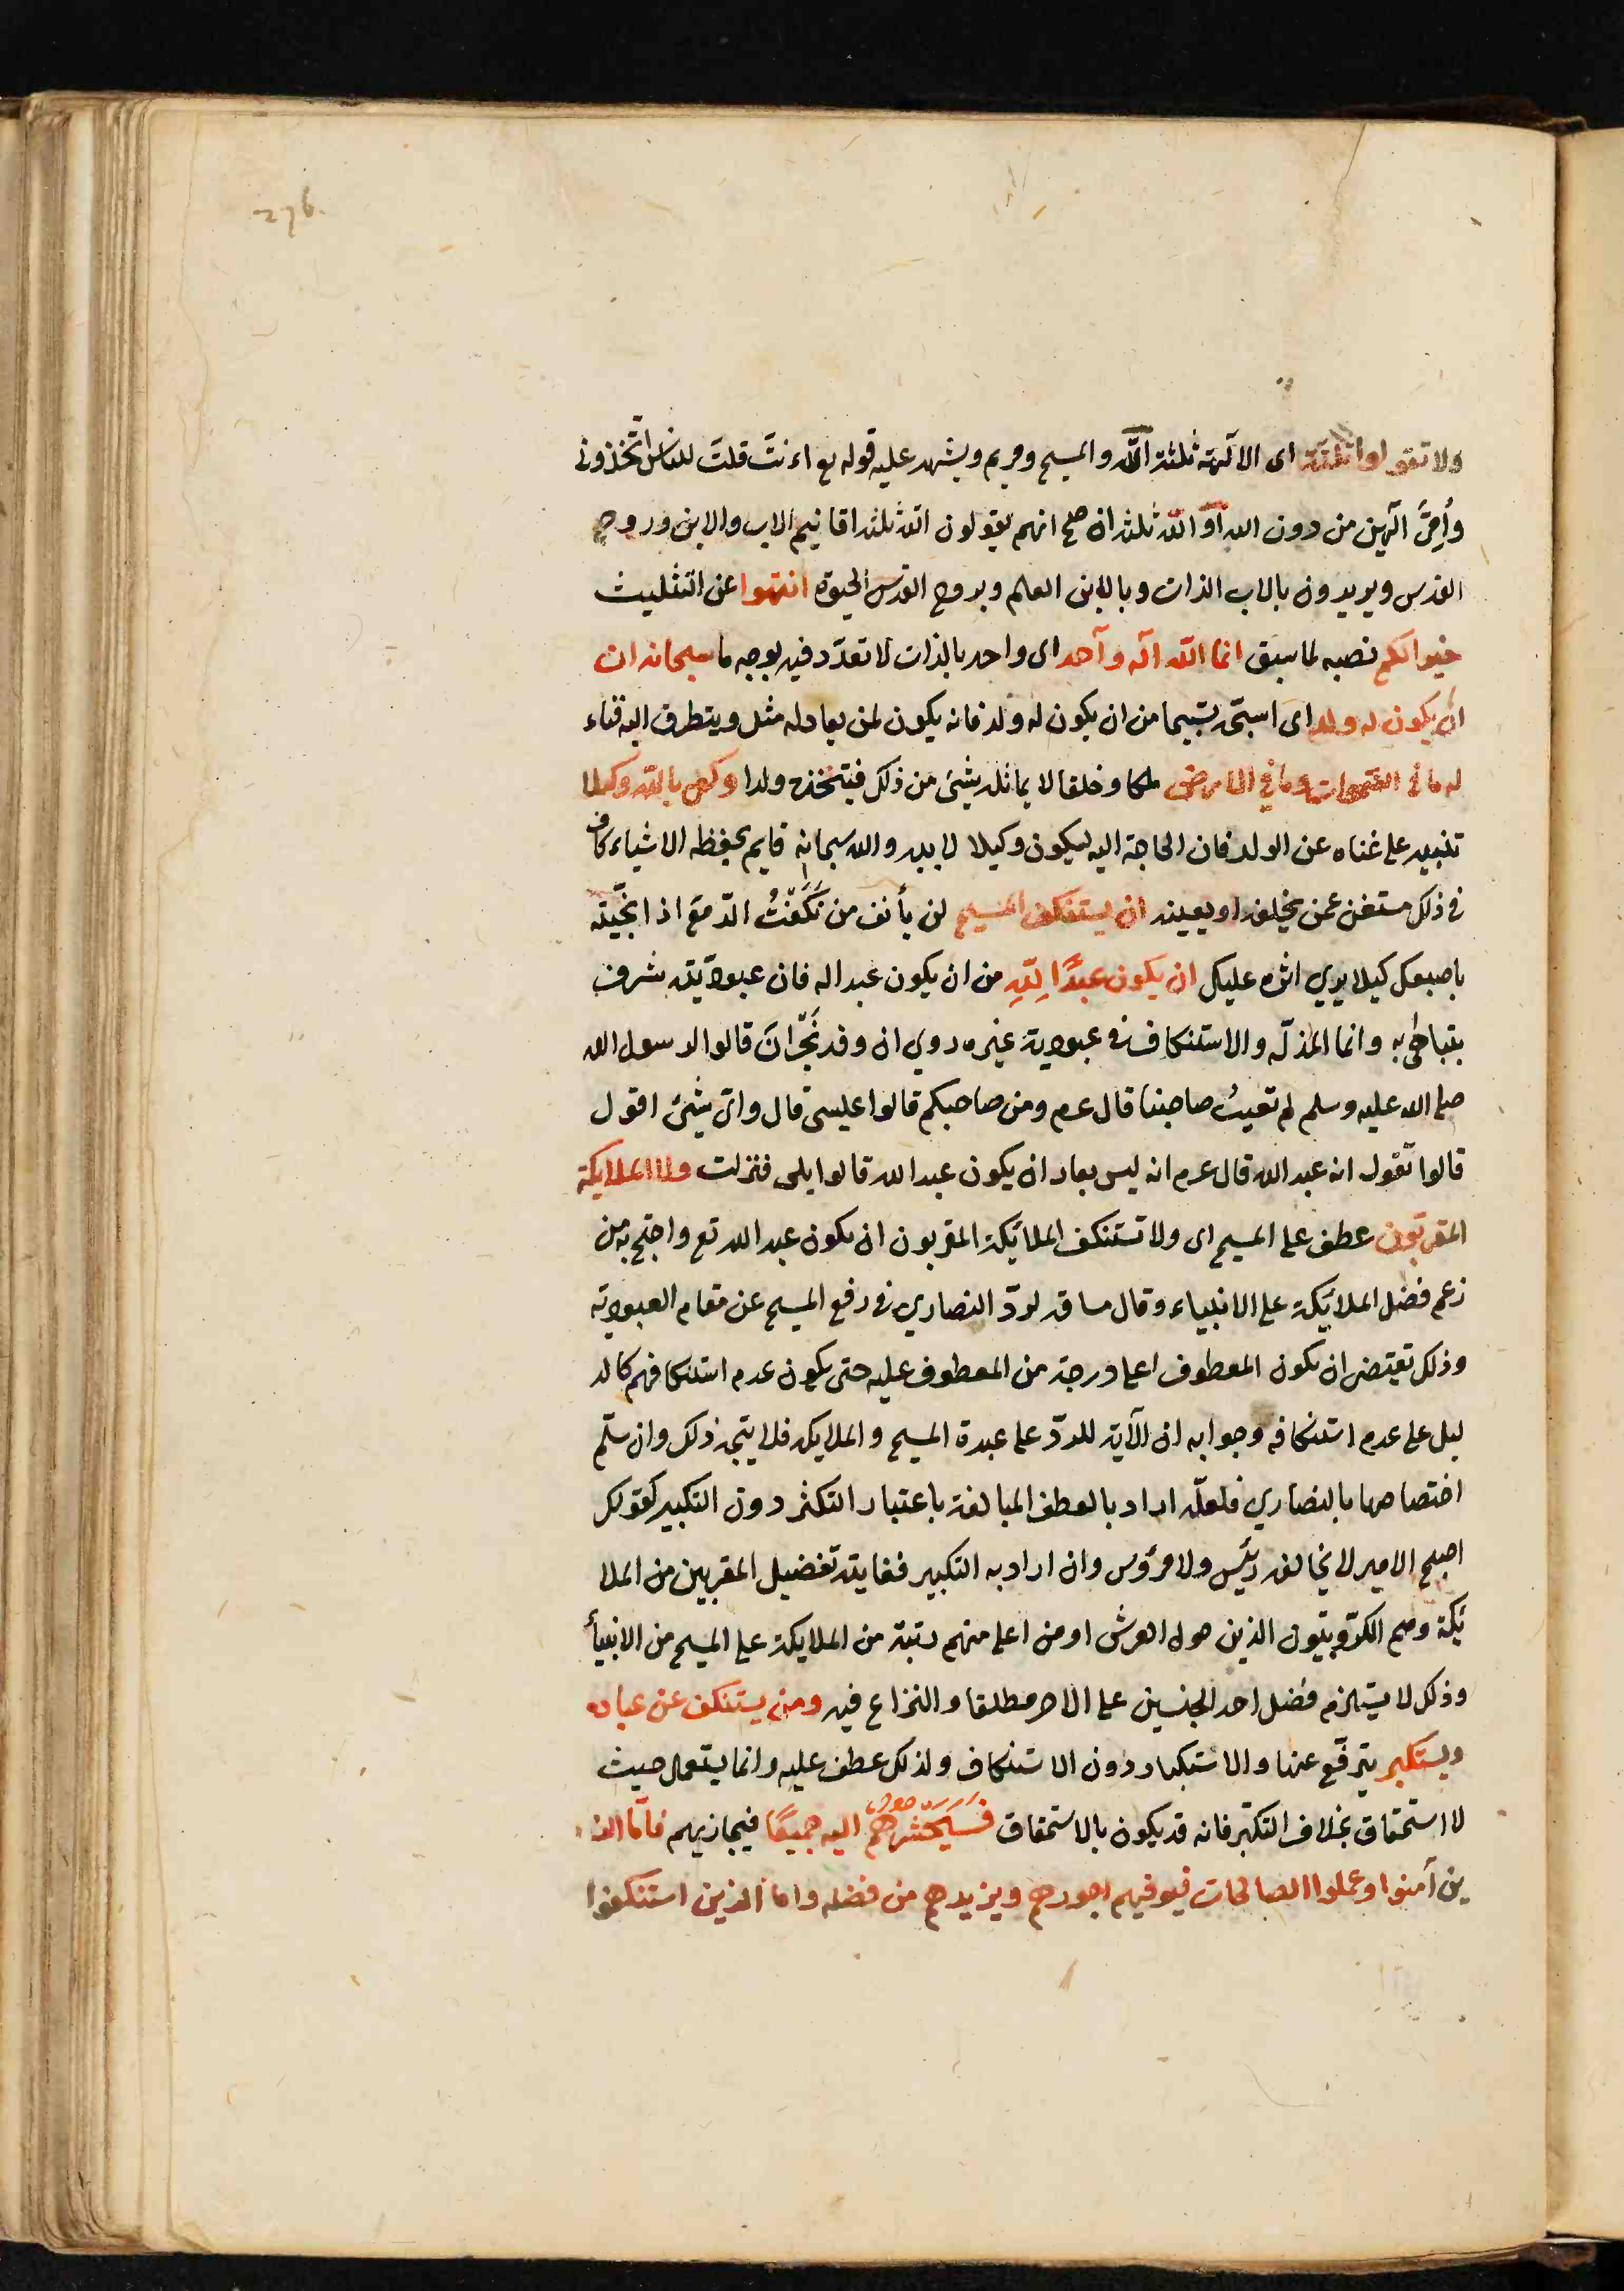 276.
ولا تقولوا ثلثة اى الآلهة ثلثة الله والمسيح ومريم ويشهد عليه قوله تع ءانت قلت للناس اتخذونى
وأمّى آلهين من دون الله او الله ثلثة ان صح انهم يقولون الله ثلثة اقانيم الاب والابن وروح
القدس ويريدون بالاب الذات وبالابن العلم وبروح القدس الحيوة انتهوا عن التثليث
خيرا لكم نصبه لما سبق انما الله اله واحد اى واحد بالذات لا تعدّد فيه بوجه ما سبحانه ان
ان يكون له ولد اى اسبحه تسبيحا من ان يكون له ولد فانه يكون لمن يعادله مثل ويتطرق اليه فناء
له ما فى السموات وما فى الارض ملكا وخلقا لا يماثله شئ من ذلك فيتخذه ولدا وكفى بالله وكيلا
تنبيه على غناه عن الولد فان الحاجة اليه ليكون وكيلا لابيه والله سبحانه قايم بحفظ الاشياء كاف
فى ذلك مستغن عمن يخلفه او يعينه لن يستنكف المسيح لن يأنف من نَكَفْتُ الدّمع اذا نحّيته
باصبعك كيلا يري اثره عليك ان يكون عبدًا لِلّهِ من ان يكون عبدا له فان عبوديّته شرف
يتباهى به وانما المذلّه والاستنكاف فى عبودية غيره روي ان وفد نَجْرانَ قالوا لرسول الله
صلى الله عليه وسلم لم تعيبُ صاحبنا قال عم ومن صاحبكم قالوا عيسى قال واىّ شئ اقول
قالوا تقول انه عبد الله قال عم انه ليس بعار ان يكون عبدا لله قالوا بلى فنزلت ولا الملايكة
المقرّبون عطف على المسيح اى ولا تستنكف الملائكة المقربون ان يكون عبدا لله تع واحتج به من
زعم فضل الملائكة على الانبياء وقال مساقه لردّ النصاري فى رفع المسيح عن مقام العبودية
وذلك تقتضى ان يكون المعطوف اعلى درجة من المعطوف عليه حتى يكون عدم استنكافهم كالد
ليل على عدم استنكافه وجوابه ان الآية للردّ على عبدة المسيح والملايكه فلا يتجه ذلك وان سلّم
اختصاصها بالنصاري فلعلّه اراد بالعطف المبالغة باعتبار التكثر دون التكبير كقولك
اصبح الامير لا يخالفه رئيس ولا مرؤس وان اراد به التكبير فغايته تفضيل المقربين من الملا
ئكة وهم الكرّوبيّون الذين حول العرش او من اعلى منهم رتبة من الملايكة على المسيح من الانبيأ
وذلك لا يستلزم فضل احد الجنسين على الاخر مطلقا والنزاع فيه ومن يستنكف عن عبادته
ويستكبر يترفّع عنها والاستكبار دون الاستنكاف ولذلك عطف عليه وانما يستعمل حيث
لا استحقاق بخلاف التكبّر فانه قد يكون بالاستحقاق فَسَيَحْشُرهم اليه جميعًا فيجازيهم فامّا الذ
ين آمنوا وعملوا الصالحات فيوفيهم اجورهم ويزيدهم من فضله واما الذين استنكفوا